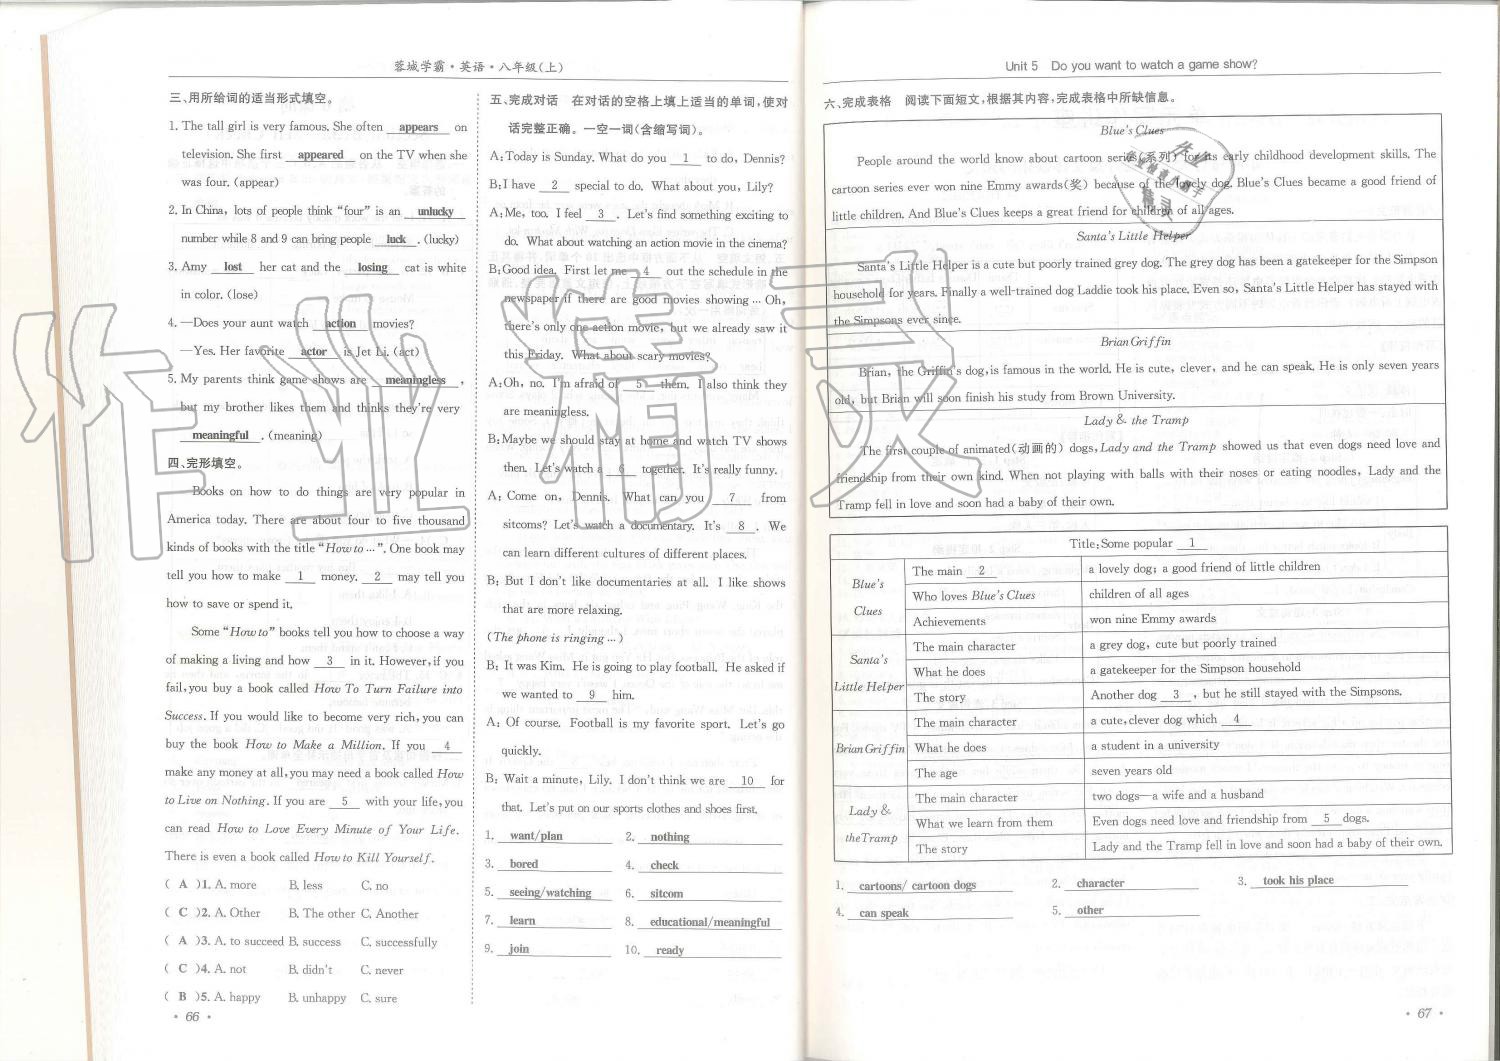 蓉城学霸·英语·八年级(上)
三、用所给词的适当形式填空。
1. The tall girl is very famous. She often appears on
television. She first appeared on the TV when she
was four. (appear)
2. In China, lots of people think "four" is an unlucky
number while 8 and 9 can bring people luck . (lucky)
3. Amy lost her cat and the losing cat is white
in color. (lose)
4. —Does your aunt watch action movies?
—Yes. Her favorite actor is Jet Li. (act)
5. My parents think game shows are meaningless ,
but my brother likes them and thinks they're very
meaningful . (meaning)
四、完形填空。
Books on how to do things are very popular in
America today. There are about four to five thousand
kinds of books with the title "How to ...". One book may
tell you how to make 1 money. 2 may tell you
how to save or spend it.
Some "How to" books tell you how to choose a way
of making a living and how 3 in it. However, if you
fail, you buy a book called How To Turn Failure into
Success. If you would like to become very rich, you can
buy the book How to Make a Million. If you 4
make any money at all, you may need a book called How
to Live on Nothing. If you are 5 with your life, you
can read How to Love Every Minute of Your Life.
There is even a book called How to Kill Yourself.
( A )1. A. more B. less C. no
( C )2. A. Other B. The other C. Another
( A )3. A. to succeed B. success C. successfully
( C )4. A. not B. didn't C. never
( B )5. A. happy B. unhappy C. sure
· 66 ·
五、完成对话 在对话的空格上填上适当的单词,使对
话完整正确。一空一词(含缩写词)。
A: Today is Sunday. What do you 1 to do, Dennis?
B: I have 2 special to do. What about you, Lily?
A: Me, too. I feel 3 . Let's find something exciting to
do. What about watching an action movie in the cinema?
B: Good idea. First let me 4 out the schedule in the
newspaper if there are good movies showing ... Oh,
there's only one action movie, but we already saw it
this Friday. What about scary movies?
A: Oh, no. I'm afraid of 5 them. I also think they
are meaningless.
B: Maybe we should stay at home and watch TV shows
then. Let's watch a 6 together. It's really funny.
A: Come on, Dennis. What can you 7 from
sitcoms? Let's watch a documentary. It's 8 . We
can learn different cultures of different places.
B: But I don't like documentaries at all. I like shows
that are more relaxing.
(The phone is ringing ...)
B: It was Kim. He is going to play football. He asked if
we wanted to 9 him.
A: Of course. Football is my favorite sport. Let's go
quickly.
B: Wait a minute, Lily. I don't think we are 10 for
that. Let's put on our sports clothes and shoes first.
1. want/plan 2. nothing
3. bored 4. check
5. seeing/watching 6. sitcom
7. learn 8. educational/meaningful
9. join 10. ready
Unit 5 Do you want to watch a game show?
六、完成表格 阅读下面短文,根据其内容,完成表格中所缺信息。
Blue's Clues
People around the world know about cartoon series(系列) for its early childhood development skills. The
cartoon series ever won nine Emmy awards(奖) because of the lovely dog. Blue's Clues became a good friend of
little children. And Blue's Clues keeps a great friend for children of all ages.
Santa's Little Helper
Santa's Little Helper is a cute but poorly trained grey dog. The grey dog has been a gatekeeper for the Simpson
household for years. Finally a well-trained dog Laddie took his place. Even so, Santa's Little Helper has stayed with
the Simpsons ever since.
Brian Griffin
Brian, the Griffin's dog, is famous in the world. He is cute, clever, and he can speak. He is only seven years
old, but Brian will soon finish his study from Brown University.
Lady & the Tramp
The first couple of animated(动画的) dogs, Lady and the Tramp showed us that even dogs need love and
friendship from their own kind. When not playing with balls with their noses or eating noodles, Lady and the
Tramp fell in love and soon had a baby of their own.
Title: Some popular 1
Blue's Clues
The main 2 a lovely dog; a good friend of little children
Who loves Blue's Clues children of all ages
Achievements won nine Emmy awards
Santa's Little Helper
The main character a grey dog, cute but poorly trained
What he does a gatekeeper for the Simpson household
The story Another dog 3 , but he still stayed with the Simpsons.
Brian Griffin
The main character a cute, clever dog which 4
What he does a student in a university
The age seven years old
Lady & the Tramp
The main character two dogs—a wife and a husband
What we learn from them Even dogs need love and friendship from 5 dogs.
The story Lady and the Tramp fell in love and soon had a baby of their own.
1. cartoons/ cartoon dogs 2. character 3. took his place
4. can speak 5. other
· 67 ·
作业精灵